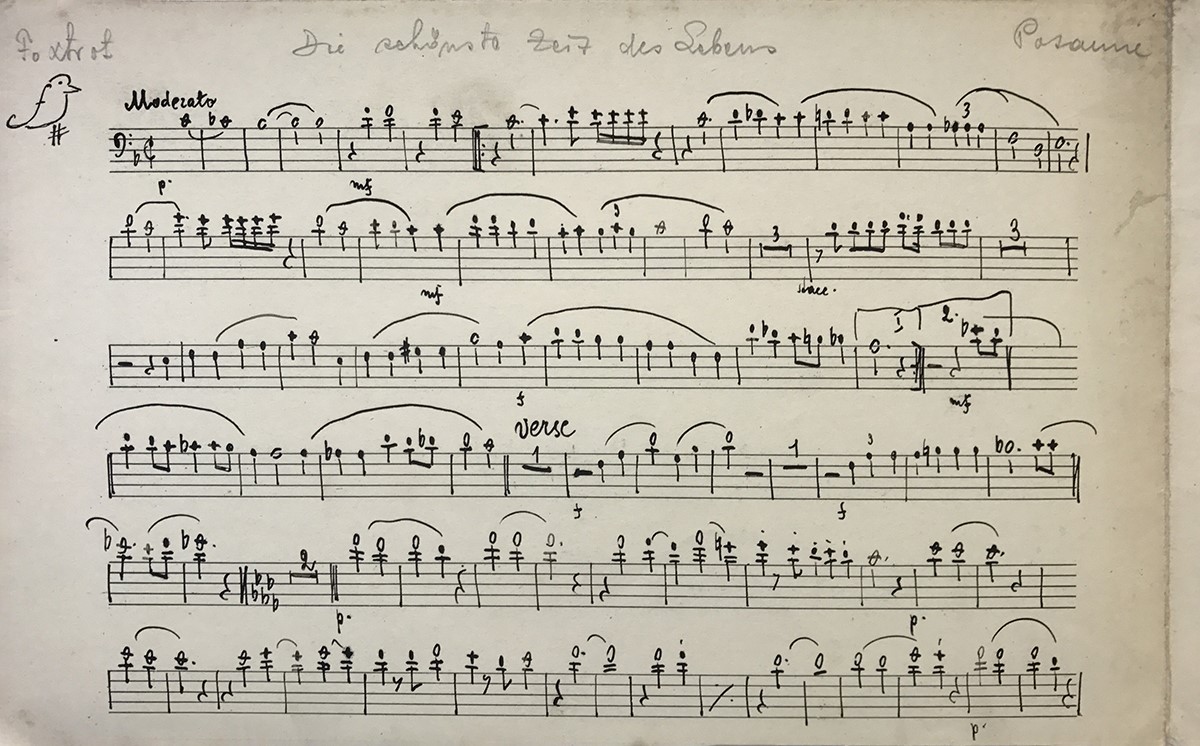 Foxtrot Die schönste Zeit des Lebens Posaune
Moderato
3
p. mf
3
3 3
mf stacc.
1. 2.
f mf
verse
1 1 3
f f
2
p. p.
p.